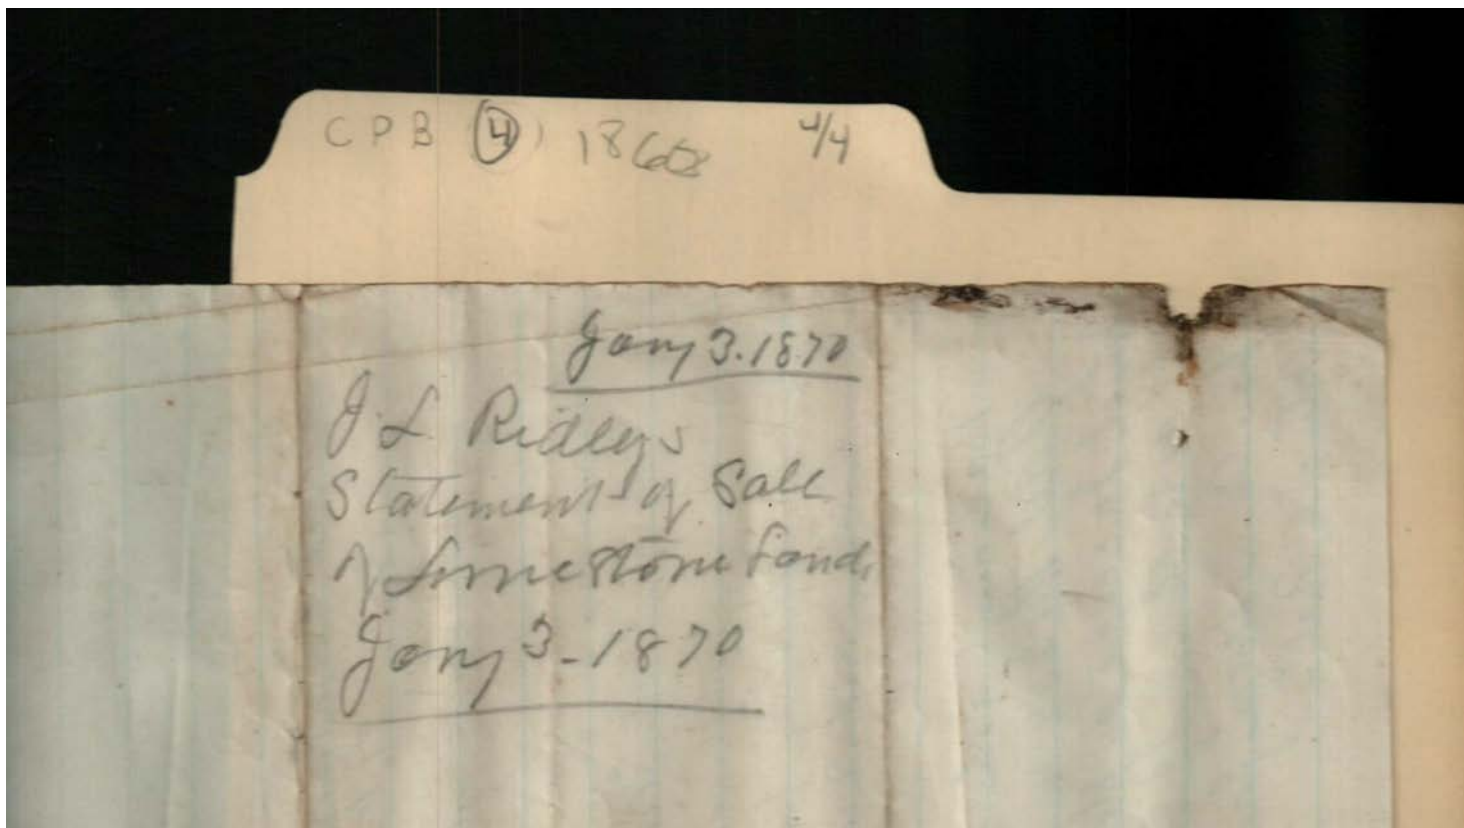 CPB (4) 1868 4/4
Jany 3. 1870
J. L. Ridleys
Statement of Sale
of Limestone Lands
Jany 3 - 1870